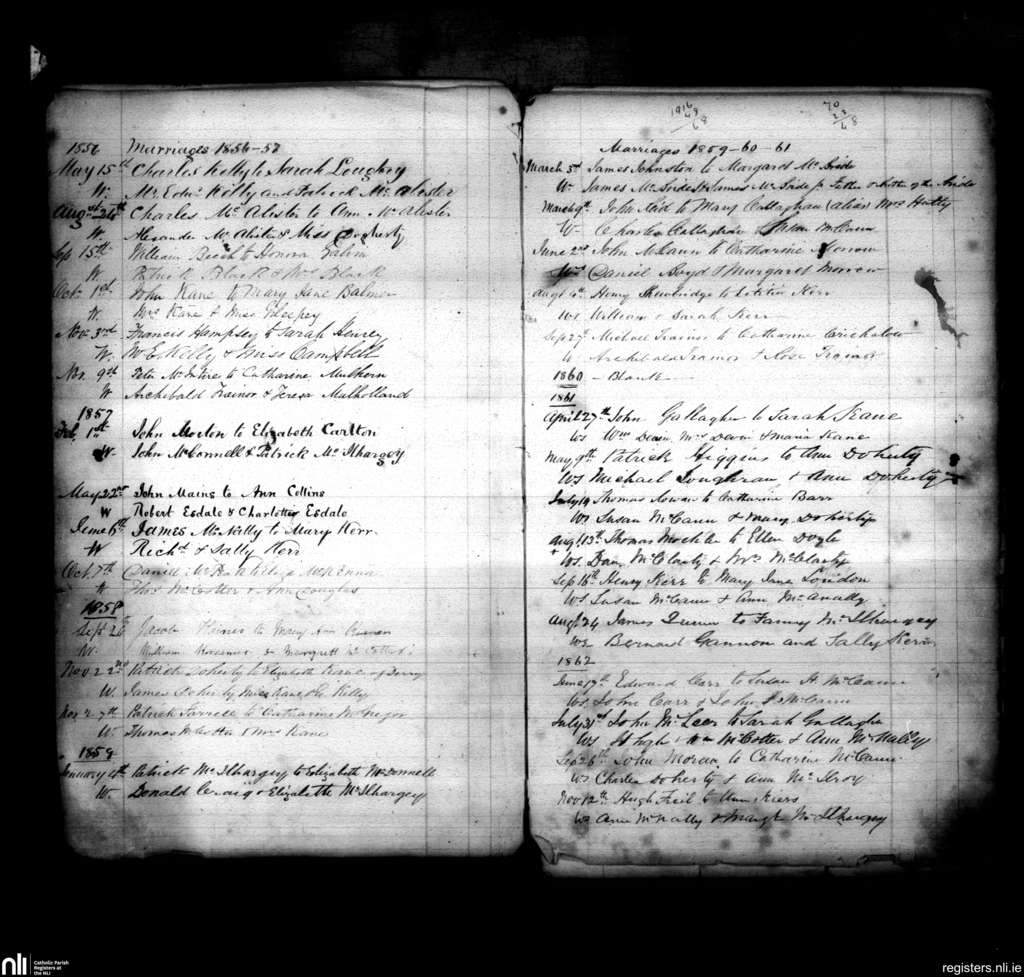 1856 Marriages 1856-57
May 15th Charles Kelly to Sarah Loughry
W. Mr Edwd Killy and Patrick Mc Alister
Augst 24th Charles Mc Alister to Ann Mc Alister
W. Alexander Mc Alister & Miss Dogherty
Sep 15th William Beech to Honora
W Patrick Black & Mrs Black
Oct. 1st John Kane to Mary Jane Balmer
W. Mrs Kane & Miss
Nov. 3rd Francis Hampsey to Sarah Henrey
W. W E Kelly & Miss Campbell
Nov. 9th Peter Mc Intire to Catharine Mulhorn
W Archibald Trainor & Teresa Mulholland
1857
Feb. 1st John Morton to Elizabeth Carlton
W. John McConnell & Patrick Mc Ilhargey
May 22nd John Mains to Ann Collins
W Robert Esdale & Charlotte Esdale
June 6th James Mc Nelly to Mary Kerr
W Richd & Sally Kerr
Oct. 7th Daniel McKenna
W Thos McCotter & Ann Douglas
1858
Sept 26 Jacob Haines to Mary Ann
W. William & Margrett McCotter
Nov 22nd Patrick Doherty to Elizabeth Kane of Derry
W. James Doherty Miss Kane & C. Kelly
Nov 27th Patrick Farrell to Catharine McGregor
W. Thomas McCotter & Mrs Kane
1859
January 4th Patrick Mc Ilhargey to Elizabeth McDonnell
W. Donald Craig & Elizabeth McIlhargey
1916
48
68
70
23
48
Marriages 1859-60-61
March 3rd James Johnston to Margaret McBride
W. James McBride & James McBride Jr Father & Brother of the Bride
March 9th John Reid to Mary Callaghan (alias) Mrs Hutty
W. Charles Callaghan & Susan McCann
June 2nd John McCann to Catharine Morrow
Ws Daniel Boyd & Margaret Morrow
Augt 4th Henry to Letitia Kerr
Ws William & Sarah Kerr
Sep 27 Michael Trainor to Catharine
W Archibald Trainor & Rose Trainor
1860 - Blank -
1861
April 27th John Gallagher to Sarah Keane
Ws Wm Devin Mrs Devin & Maria Keane
May 9th Patrick Higgins to Ann Doherty
Ws Michael Loughran, & Ann Doherty
July 14 Thomas to Catharine Barr
Ws Susan McCann & Mary Doherty
Augt 13th Thomas to Ellen Doyle
Ws. Dan McClarty & Mrs McClarty
Sep 16th Henry Kerr to Mary Jane London
Ws Susan McCann & Ann McAnally
Augt 24 James Quinn to Fanny McIlhargey
Ws Bernard Gannon and Sally Kerr
1862
June 17th Edward Carr to Susan H. McCann
Ws. John Carr & John McCann
July 31st John McLees to Sarah Gallagher
Ws Hugh & Wm McCotter & Ann McNally
Sep 26th John Moran to Catharine McCann
Ws Charles Doherty & Ann McIlroy
Nov 12th Hugh Friel to Ann Kiers
Ws Ann McNally & Margt McIlhargey
nli
Catholic Parish
Registers at
the NLI
registers.nli.ie